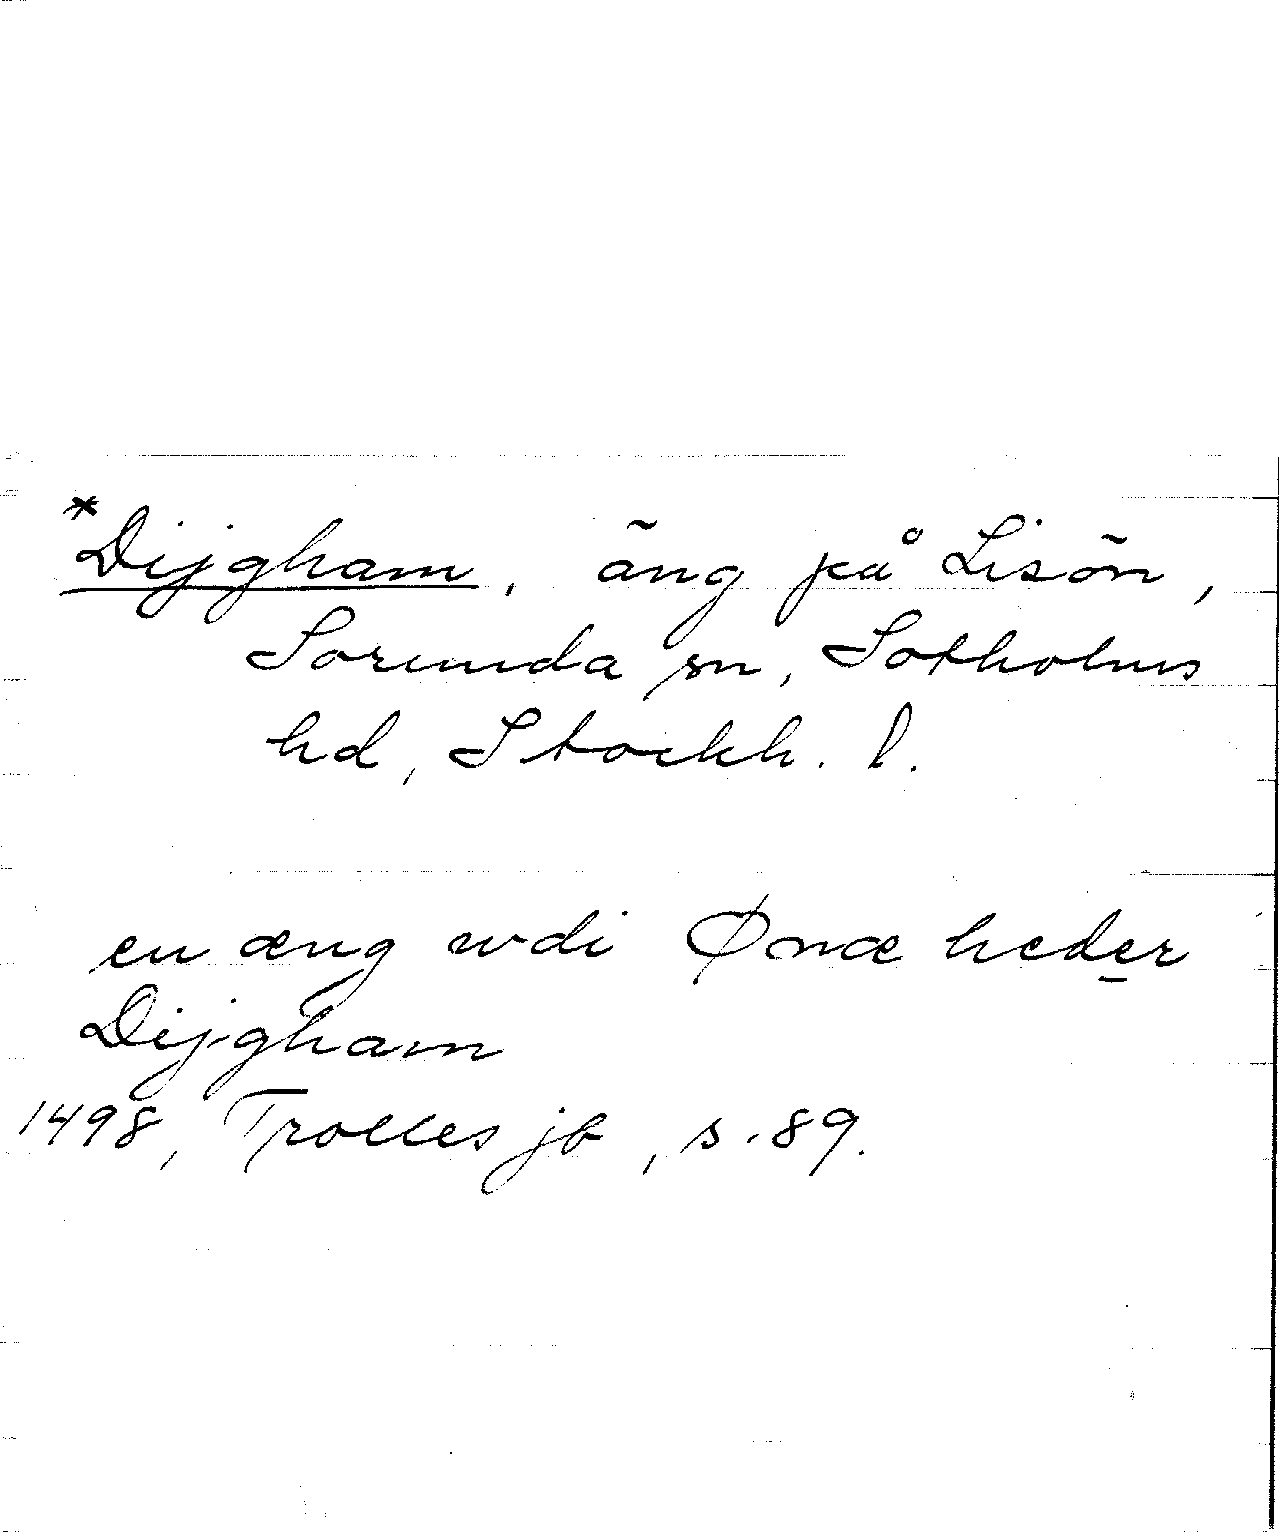 *Dijgham, äng på Lisön,
Sorunda sn, Sotholms
hd, Stockh. l.
en æng wdi Ønæ heder
Dijgham
1498, Trolles jb, s. 89.